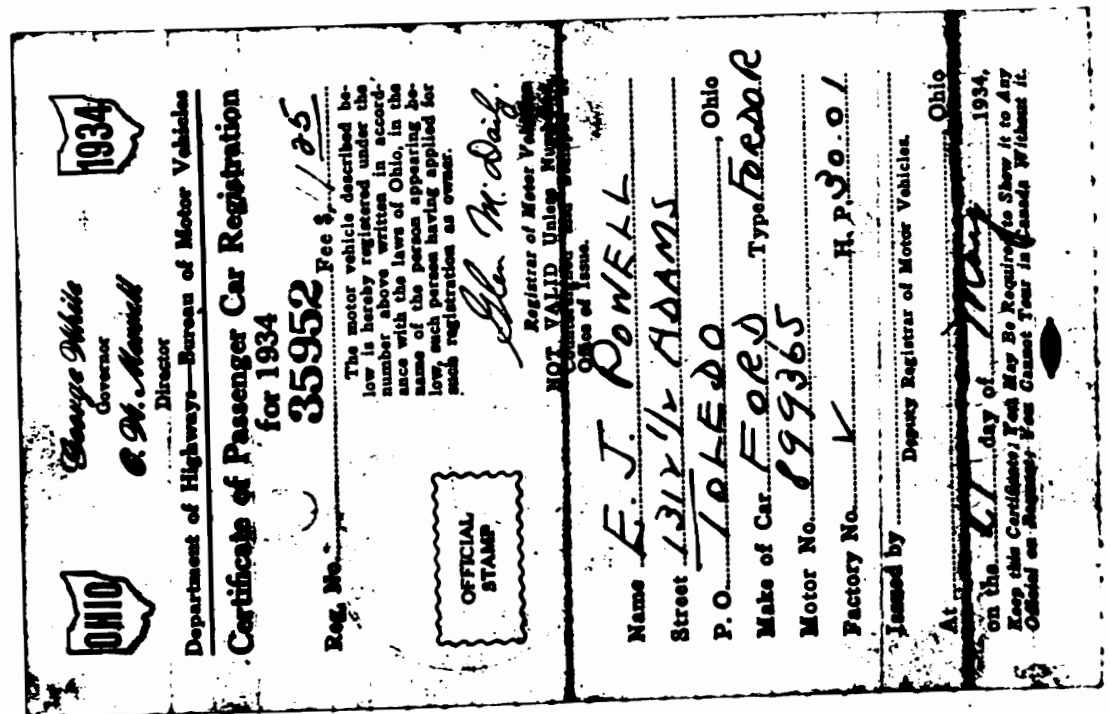 OHIO
1934
George White
Governor
Director
Department of Highways—Bureau of Motor Vehicles
Certificate of Passenger Car Registration
for 1934
Reg. No. 35952 Fee $ 1 25
The motor vehicle described be-
low is hereby registered under the
number above written in accord-
ance with the laws of Ohio, in the
name of the person appearing be-
low, such person having applied for
such registration as owner.
OFFICIAL
STAMP
Glen M. Daily.
Registrar of Motor Vehicles
NOT VALID Unless
Office of Issue.
Name E. J. POWELL
Street 1312 1/2 ADAMS
P. O. TOLEDO, Ohio
Make of Car FORD Type FORDOR
Motor No. 899365
Factory No. ✓ H. P. 30.01
Issued by
Deputy Registrar of Motor Vehicles.
At Ohio
on the day of May 1934.
Keep this Certificate; You May Be Required to Show it to Any
Official on Request; You Cannot Tour in Canada Without it.